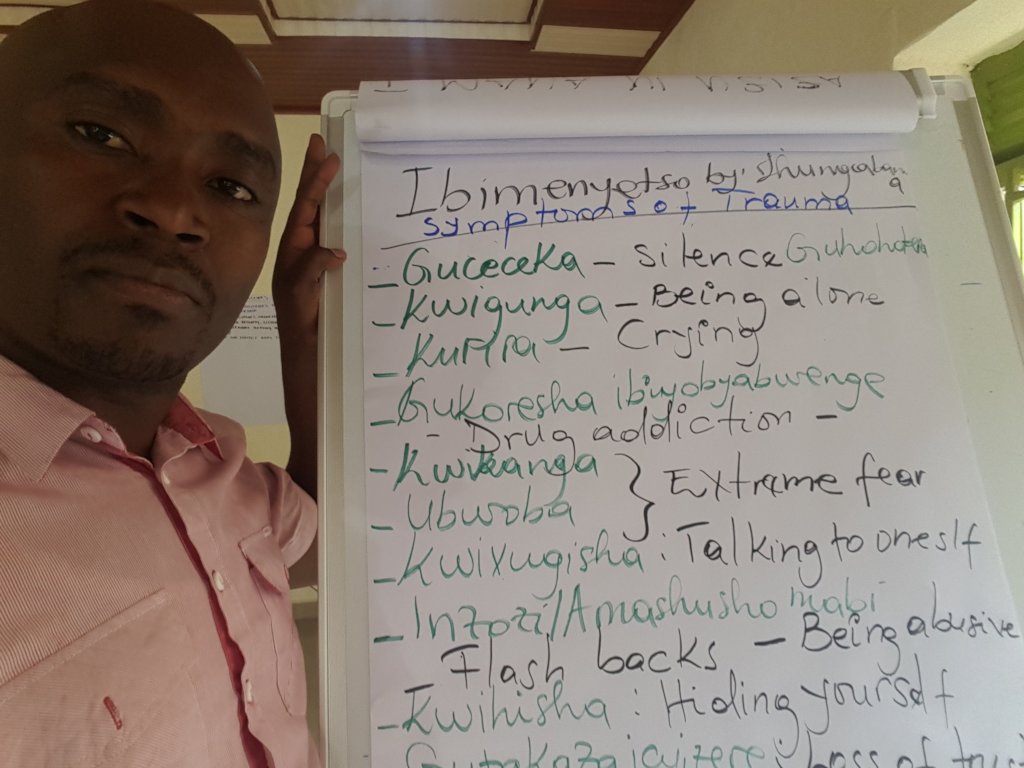 Ibimenyetso by'
Symptoms of Trauma
- Guceceka - Silence
- Kwigunga - Being alone
- Kurira - Crying
- Gukoresha ibiyobyabwenge
- Drug addiction -
- Kwikanga
- Ubwoba } Extreme fear
- Kwivugisha : Talking to oneslf
- Inzozi/Amashusho mabi
- Flash backs - Being abusive
- Kwihisha : Hiding yourself
Gutakaza icyizere : Loss of